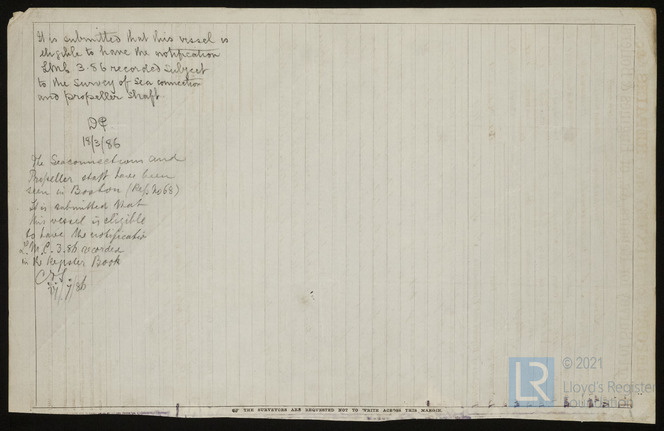 It is submitted that this vessel is
eligible to have the notification
LMC 3.86 recorded subject
to the survey of sea connection
and propeller shaft.
18/3/86
The Seaconnections and
Propeller shaft have been
seen in Boston (Rep. No 63)
It is submitted that
this vessel is eligible
to have the notificatio
L.M.C. 3.86 recorded
in the Register Book
/7/86
THE SURVEYORS ARE REQUESTED NOT TO WRITE ACROSS THIS MARGIN
LR
© 2021
Lloyd's Register
Foundation